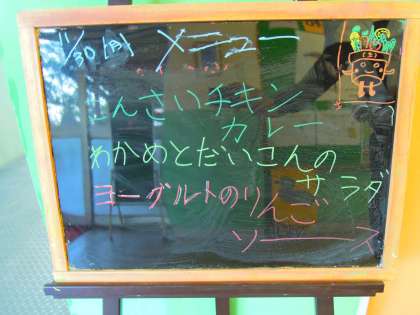 11/30 (月) メニュー
こんさいチキン
カレー
わかめとだいこんの
サラダ
ヨーグルトのりんご
ソース